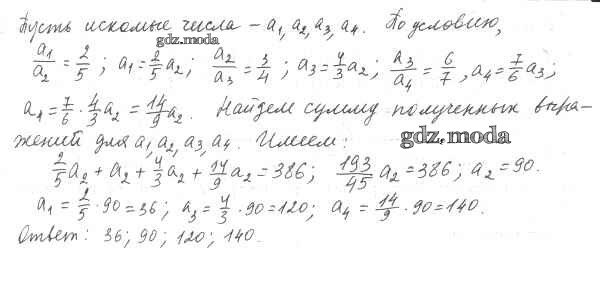 Пусть искомые числа – a₁, a₂, a₃, a₄. По условию,
gdz.moda
a₁/a₂ = 2/5 ; a₁ = 2/5 a₂ ; a₂/a₃ = 3/4 ; a₃ = 4/3 a₂ ; a₃/a₄ = 6/7 , a₄ = 7/6 a₃ ;
a₄ = 7/6 · 4/3 a₂ = 14/9 a₂ . Найдем сумму полученных выра-
жений для a₁, a₂, a₃, a₄. Имеем:
gdz.moda
2/5 a₂ + a₂ + 4/3 a₂ + 14/9 a₂ = 386 ; 193/45 a₂ = 386 ; a₂ = 90.
a₁ = 2/5 · 90 = 36 ; a₃ = 4/3 · 90 = 120 ; a₄ = 14/9 · 90 = 140.
Ответ: 36; 90; 120; 140.